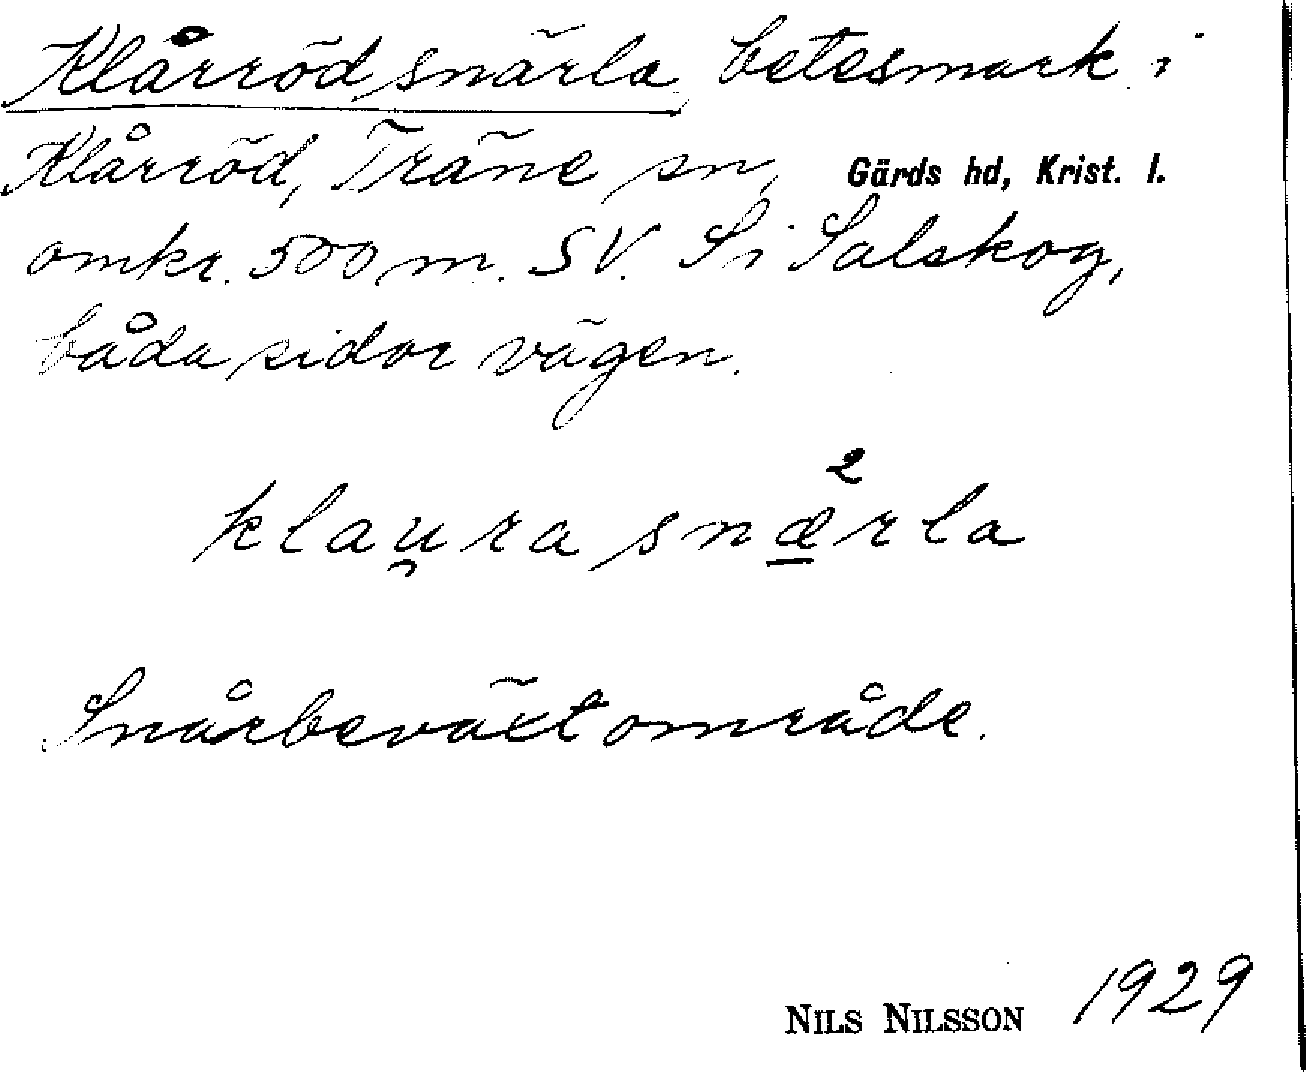 Klårröd snärla betesmark i
Klårröd, Träne sn, Gärds hd, Krist. l.
omkr. 500 m. SV. S i Salskog,
båda sidor vägen.
klau̯ra snæ̱²rla
Snårbeväxt område.
NILS NILSSON 1929